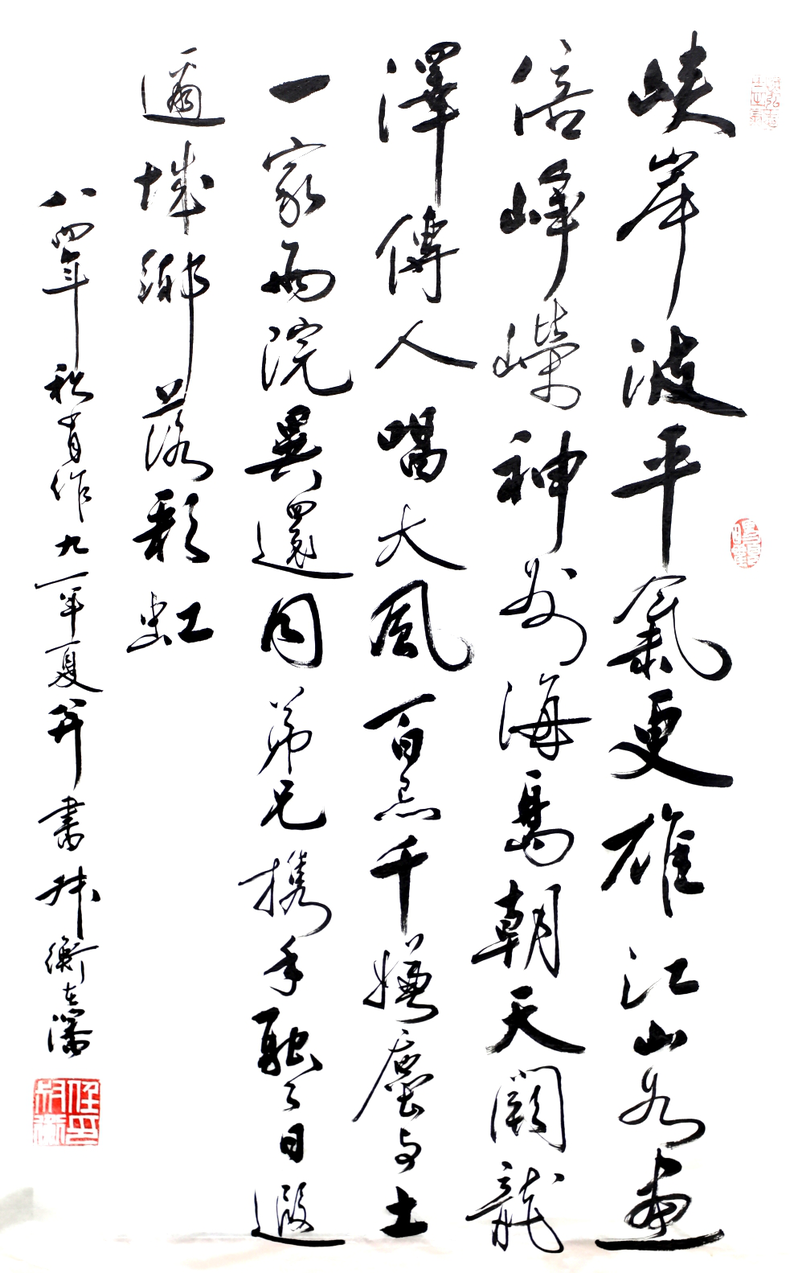 峽岸波平氣更雄江山如畫
倍崢嶸神州海島朝天闕龍
澤傳人唱大風百忌千嫌塵与土
一家兩院異還同弟兄携手融々日遐
邇城鄉落彩虹
八四年秋作九一年夏并書 衡在瀋